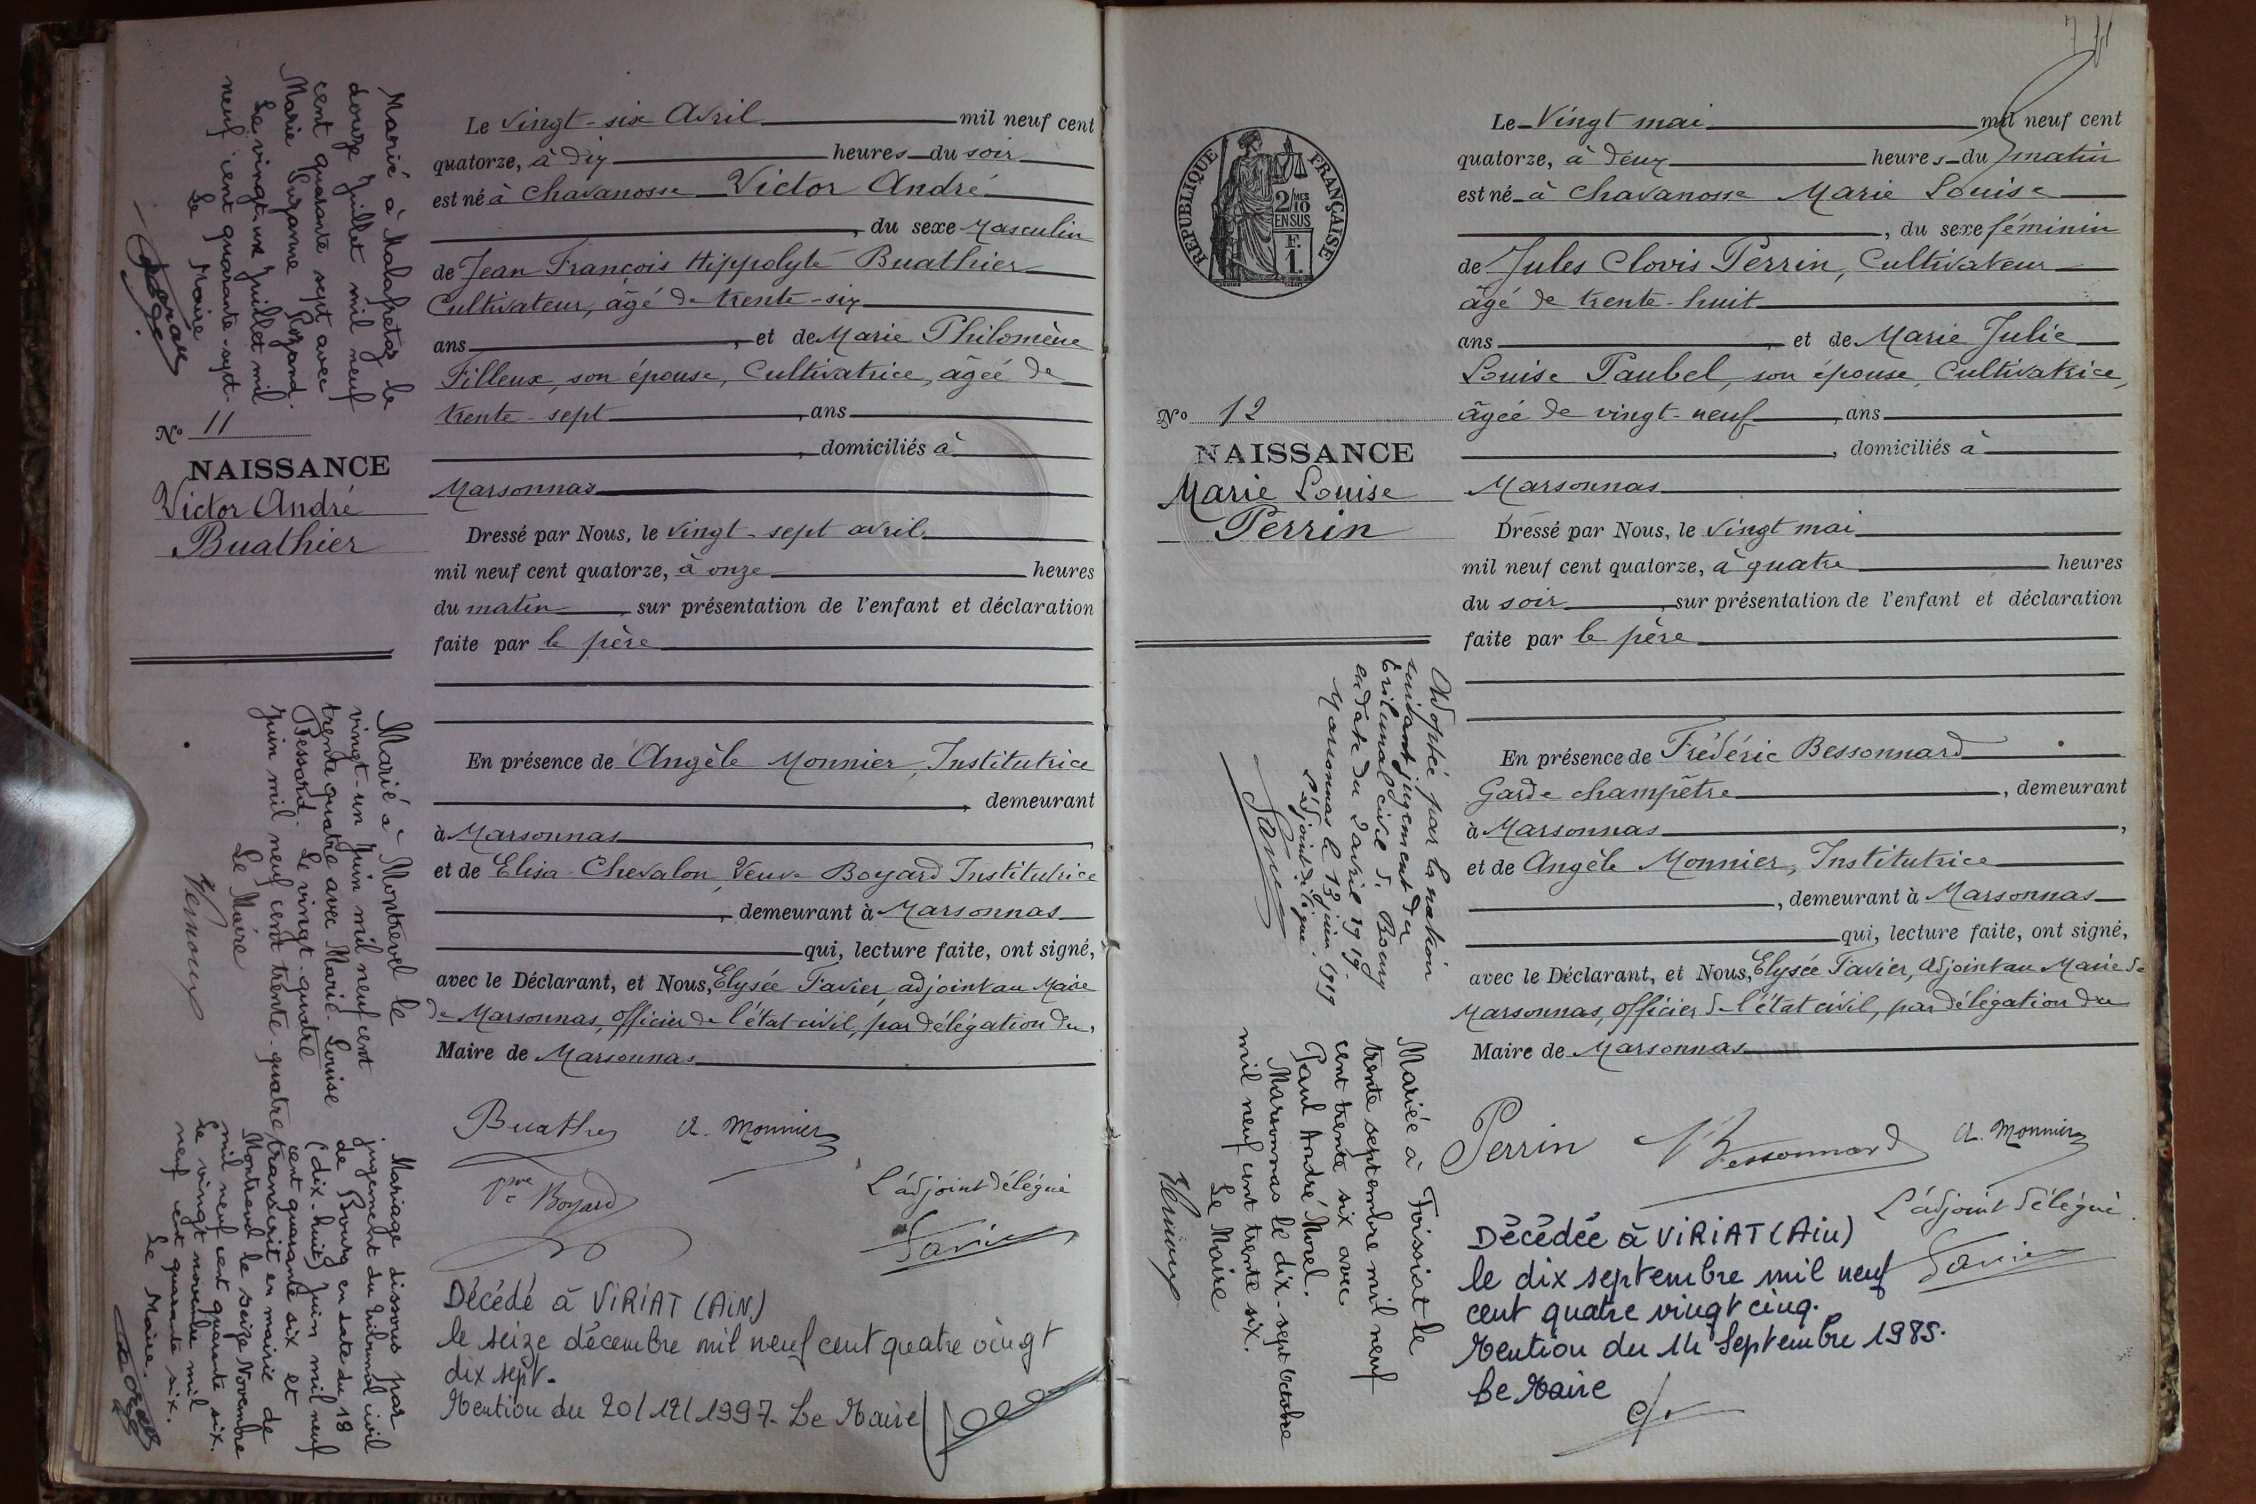 Marié à Malafretaz le
douze Juillet mil neuf
cent quarante sept avec
Marie Suzanne
Le vingt un Juillet mil
neuf cent quarante-sept.
Le Maire
N° 11
NAISSANCE
Victor André
Buathier
Marié à Montrevel le
vingt-un Juin mil neuf cent
trente quatre avec Marie-Louise
Bessard. Le vingt-quatre
Juin mil neuf cent trente-quatre
Le Maire
Mariage dissous par
jugement du tribunal civil
de Bourg en date du 18
(dix-huit) Juin mil neuf
cent quarante six et
transcrit en mairie de
Montrevel le seize Novembre
mil neuf cent quarante six.
Le vingt novembre mil
neuf cent quarante six.
Le Maire.
Le vingt-six Avril mil neuf cent
quatorze, à dix heures du soir
est né à Chavanosse Victor André
, du sexe Masculin
de Jean François Hippolyte Buathier
Cultivateur, âgé de trente-six
ans, et de Marie Philomène
Filleux, son épouse, Cultivatrice, âgée de
trente-sept, ans
, domiciliés à
Marsonnas
Dressé par Nous, le vingt-sept avril
mil neuf cent quatorze, à onze heures
du matin, sur présentation de l'enfant et déclaration
faite par le père
En présence de Angèle Monnier, Institutrice
, demeurant
à Marsonnas,
et de Elisa Chevalon, Veuve Boyard Institutrice
, demeurant à Marsonnas
qui, lecture faite, ont signé,
avec le Déclarant, et Nous, Elysée Favier, adjoint au Maire
de Marsonnas, Officier de l'état-civil, par délégation du,
Maire de Marsonnas
Buathier A. Monnier
Vve Boyard L'adjoint délégué
Favier
Décédé à VIRIAT (AIN)
le seize décembre mil neuf cent quatre vingt
dix sept.
Mention du 20/12/1997. Le Maire
N° 12
NAISSANCE
Marie Louise
Perrin
RÉPUBLIQUE FRANÇAISE
2/10 MES
EN SUS
F.
1.
Adoptée par la nation
suivant jugement du
tribunal civil de Bourg
en date du 2 avril 1919.
Marsonnas le 13 juin 1919
L'adjoint délégué.
Favier
Mariée à Foissiat le
trente septembre mil neuf
cent trente six avec
Paul André Morel.
Marsonnas le dix-sept Octobre
mil neuf cent trente six.
Le Maire
Le Vingt mai mil neuf cent
quatorze, à deux heures du matin
est né à Chavanosse Marie Louise
, du sexe féminin
de Jules Clovis Perrin, Cultivateur
âgé de trente-huit
ans, et de Marie Julie
Louise Paubel, son épouse, Cultivatrice,
âgée de vingt-neuf, ans
, domiciliés à
Marsonnas
Dressé par Nous, le vingt mai
mil neuf cent quatorze, à quatre heures
du soir, sur présentation de l'enfant et déclaration
faite par le père
En présence de Frédéric Bessonnard
Garde champêtre, demeurant
à Marsonnas,
et de Angèle Monnier, Institutrice
, demeurant à Marsonnas
qui, lecture faite, ont signé,
avec le Déclarant, et Nous, Elysée Favier, Adjoint au Maire de
Marsonnas, Officier de l'état civil, par délégation du
Maire de Marsonnas
Perrin Bessonnard A. Monnier
L'adjoint délégué.
Favier
Décédée à VIRIAT (Ain)
le dix septembre mil neuf
cent quatre vingt cinq.
Mention du 14 Septembre 1985.
Le Maire